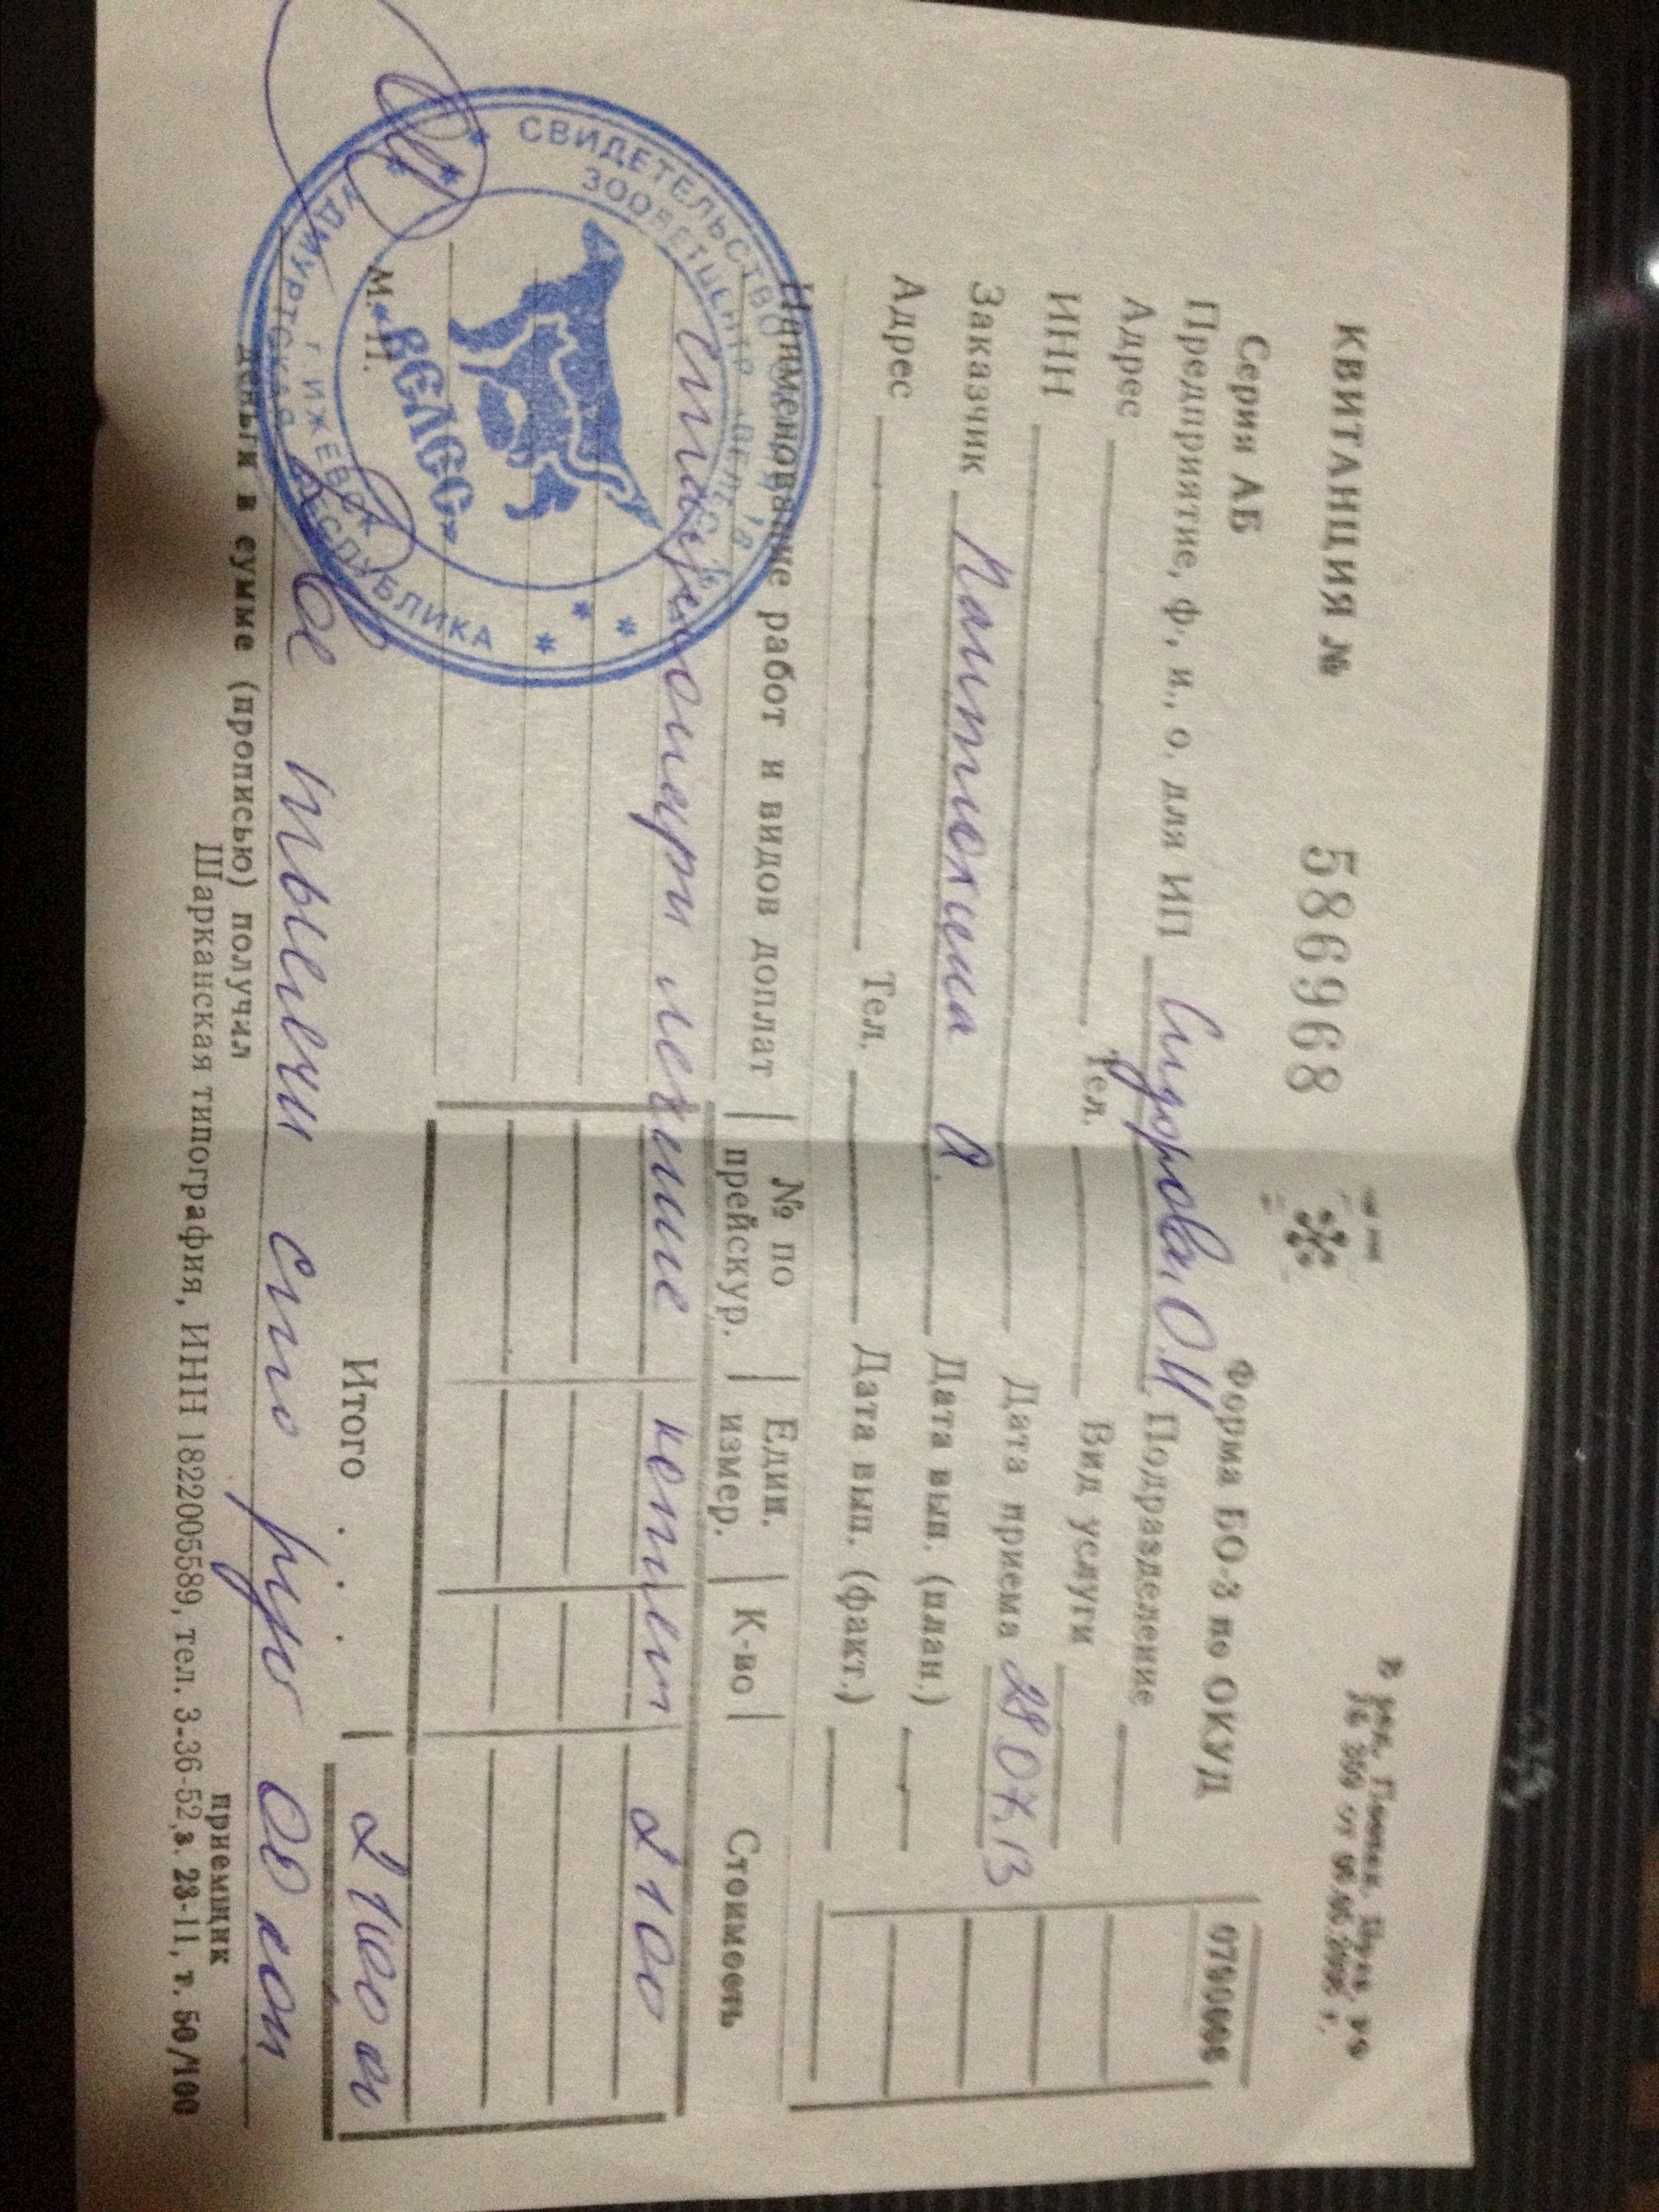 КВИТАНЦИЯ № 5869968
Серия АБ
Форма БО-3 по ОКУД 0700006
Предприятие, ф., и., о. для ИП Сидорова О.И Подразделение
Адрес Тел. Вид услуги
ИНН Дата приема 28.07.13
Заказчик А. Дата вып. (план.)
Адрес Тел. Дата вып. (факт.)
Наименование работ и видов доплат № по прейскур. Един. измер. К-во Стоимость
лечение 2100
Итого 2100
М. П.
Две тысячи сто руб 00 коп
деньги в сумме (прописью) получил приемщик
Шарканская типография, ИНН 1822005589, тел. 3-36-52, з. 28-11, т. 50/100
СВИДЕТЕЛЬСТВО
ЗООВЕТЦЕНТР "ВЕЛЕС"
«ВЕЛЕС»
г. ИЖЕВСК
УДМУРТСКАЯ РЕСПУБЛИКА